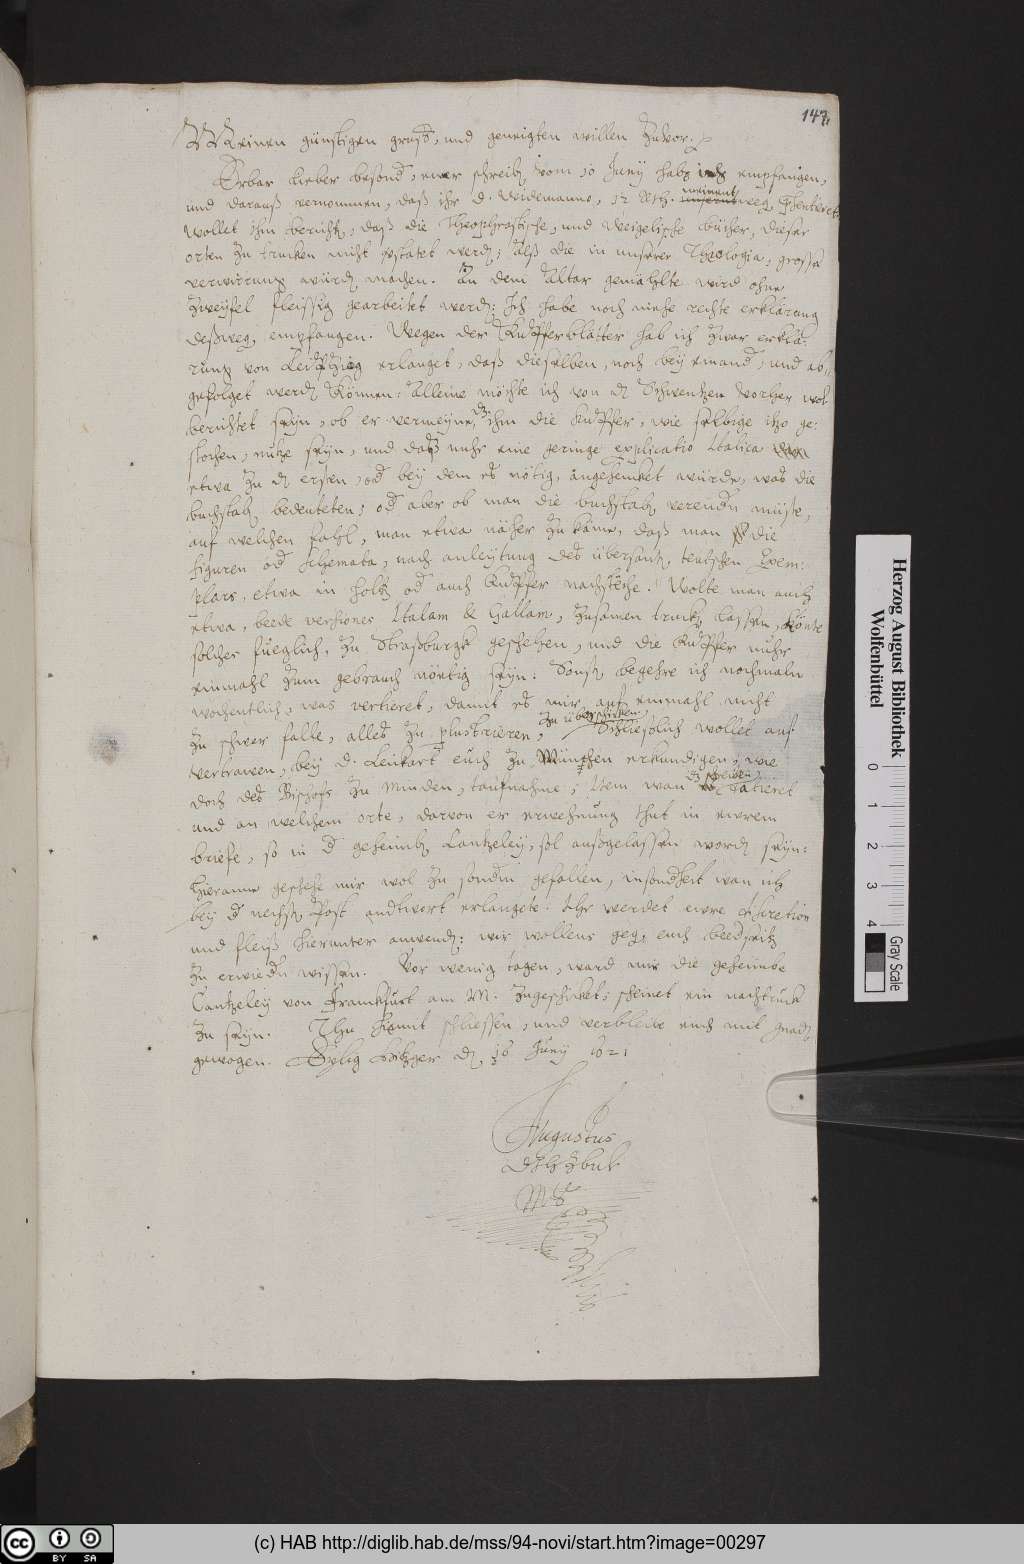 147.
Meinen günstigen gruß, und geneigten willen zuvor.
Erbar lieber besond, ewer schreib. vom 10 Juny hab ich empfangen,
und darauß vernommen, daß ihr d. Weidemanno, 12 Rth. meinent weg.
wollet ihm bericht, daß die Theophrastische, und Weigelische bücher, dieser
orten zu trucken nicht gestatet werd; Alß die in unserer Theologia, grosse
verwirrung würd machen. An dem Altar gemählte wird ohne
zweyfel fleissig gearbeitet werd: Ich habe noch rechte erklärung
deßweg. empfangen. Wegen der Kupfferblätter hab ich zwar erklä-
rung von Leipzig erlanget, daß dieselben, noch bey einand, und ab-
gefolget werd können: Alleine möchte ich von d Schwentzen vorher wol
berichtet seyn, ob er vermeyne, dz ihm die Kupffer, wie selbige itzo ge-
stochen, nutze seyn, und daß mehr eine geringe explicatio Italica
etwa zu d ersten, od bey dem es nötig, angehencket würde, was die
buchstab. bedeuteten; od aber ob man die buchstab. verendn müste,
auf welchen fahl, man etwa näher zu käme, daß man die
figuren od schemata, nach anleytung des übersant. teutschen Exem-
plars, etwa in holtz od auch Kupffer nachstäche. Wolte man auch
etwa, beede versiones Italam & Gallam, zusamen truck. lassen, könte
solches füeglich, zu Straßburgk geschehen, und die Kupffer nuhr
einmahl zum gebrauch nötig seyn: Sonst begehre ich nochmaln
wochentlich, was vertieret, damit es mir auf einmahl nicht
zu schwer falle, alles zu plustrieren,
zu überschicken. Schließlich wollet auf
vertrawen, bey d. Leukart euch zu München erkundigen, wie
doch des Bischofs zu Minden, taufnahme; Item wan
und an welchem orte, darvon er erwehnung thut in ewrem
briefe, so in d geheimb. Cantzeley, sol außgelassen word seyn:
Hieranne geschehe mir wol zu sondn gefallen, insondheit wan ich
bey d nechst. Post andtwort erlangete. Ihr werdet ewre discretion
und fleiß hierunter anwend; wir wollens geg. euch beedseitz
zu erwiedn wissen. Vor wenig tagen, ward mir die geheimbe
Cantzeley von Franckfurt am M. zugeschicket; scheinet ein nachtruck
zu seyn. Thu hiemit schliessen, und verbleibe euch mit gnad.
gewogen. Eylig Hitzger d. 16 Juny 1621
Augustus
DJHZBUL
Mp
Herzog August Bibliothek
Wolfenbüttel
0 1 2 3 4
Gray Scale
BY SA
(c) HAB http://diglib.hab.de/mss/94-novi/start.htm?image=00297